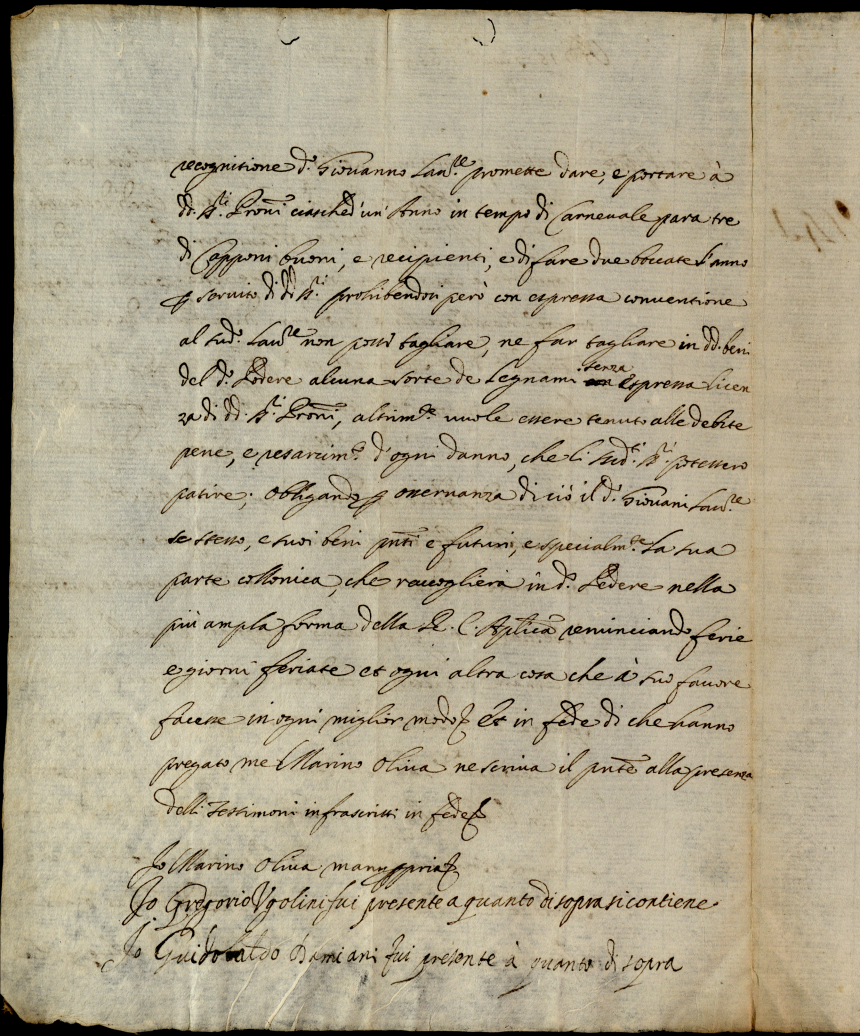 recognitione d.º Giovanno Lau.re promette dare, e portare à
dd. SS.ri Pro͞ni ciasched'un'Anno in tempo di Carnevale para tre
di Capponi buoni, e recipienti, e di fare due boccate l'anno
servito di dd. SS.ri prohibendosi però con espressa conventione
al sud.º Lau.re non possi tagliare, ne far tagliare in dd. beni
del d.º Podere alcuna sorte de Legnami senza espressa licen
za di dd. SS.ri Pro͞ni, altrim.te vuole essere tenuto alle debite
pene, e resarcim.to d'ogni danno, che li sud.i SS.ri potessero
patire; obligando osservanza di ciò il d.º Giovani Lau.re
se stesso, e suoi beni pn͞ti e futuri, e specialm.te la sua
parte collonica, che raccoglierà in d.º Podere nella
più ampla forma della R. C. Ap͞lica renunciando ferie
e giorni feriate et ogni altra cosa che à suo favore
facesse in ogni miglior modo et in fede di che hanno
pregato me Marino Oliva ne scriva il pn͞te alla presenza
delli Testimoni infrascritti in fede
Io Marino Oliva manu ppria
Io Gregorio Ugolini fui presente a quanto di sopra si contiene
Io Guidobaldo Damiani fui presente à quanto di sopra